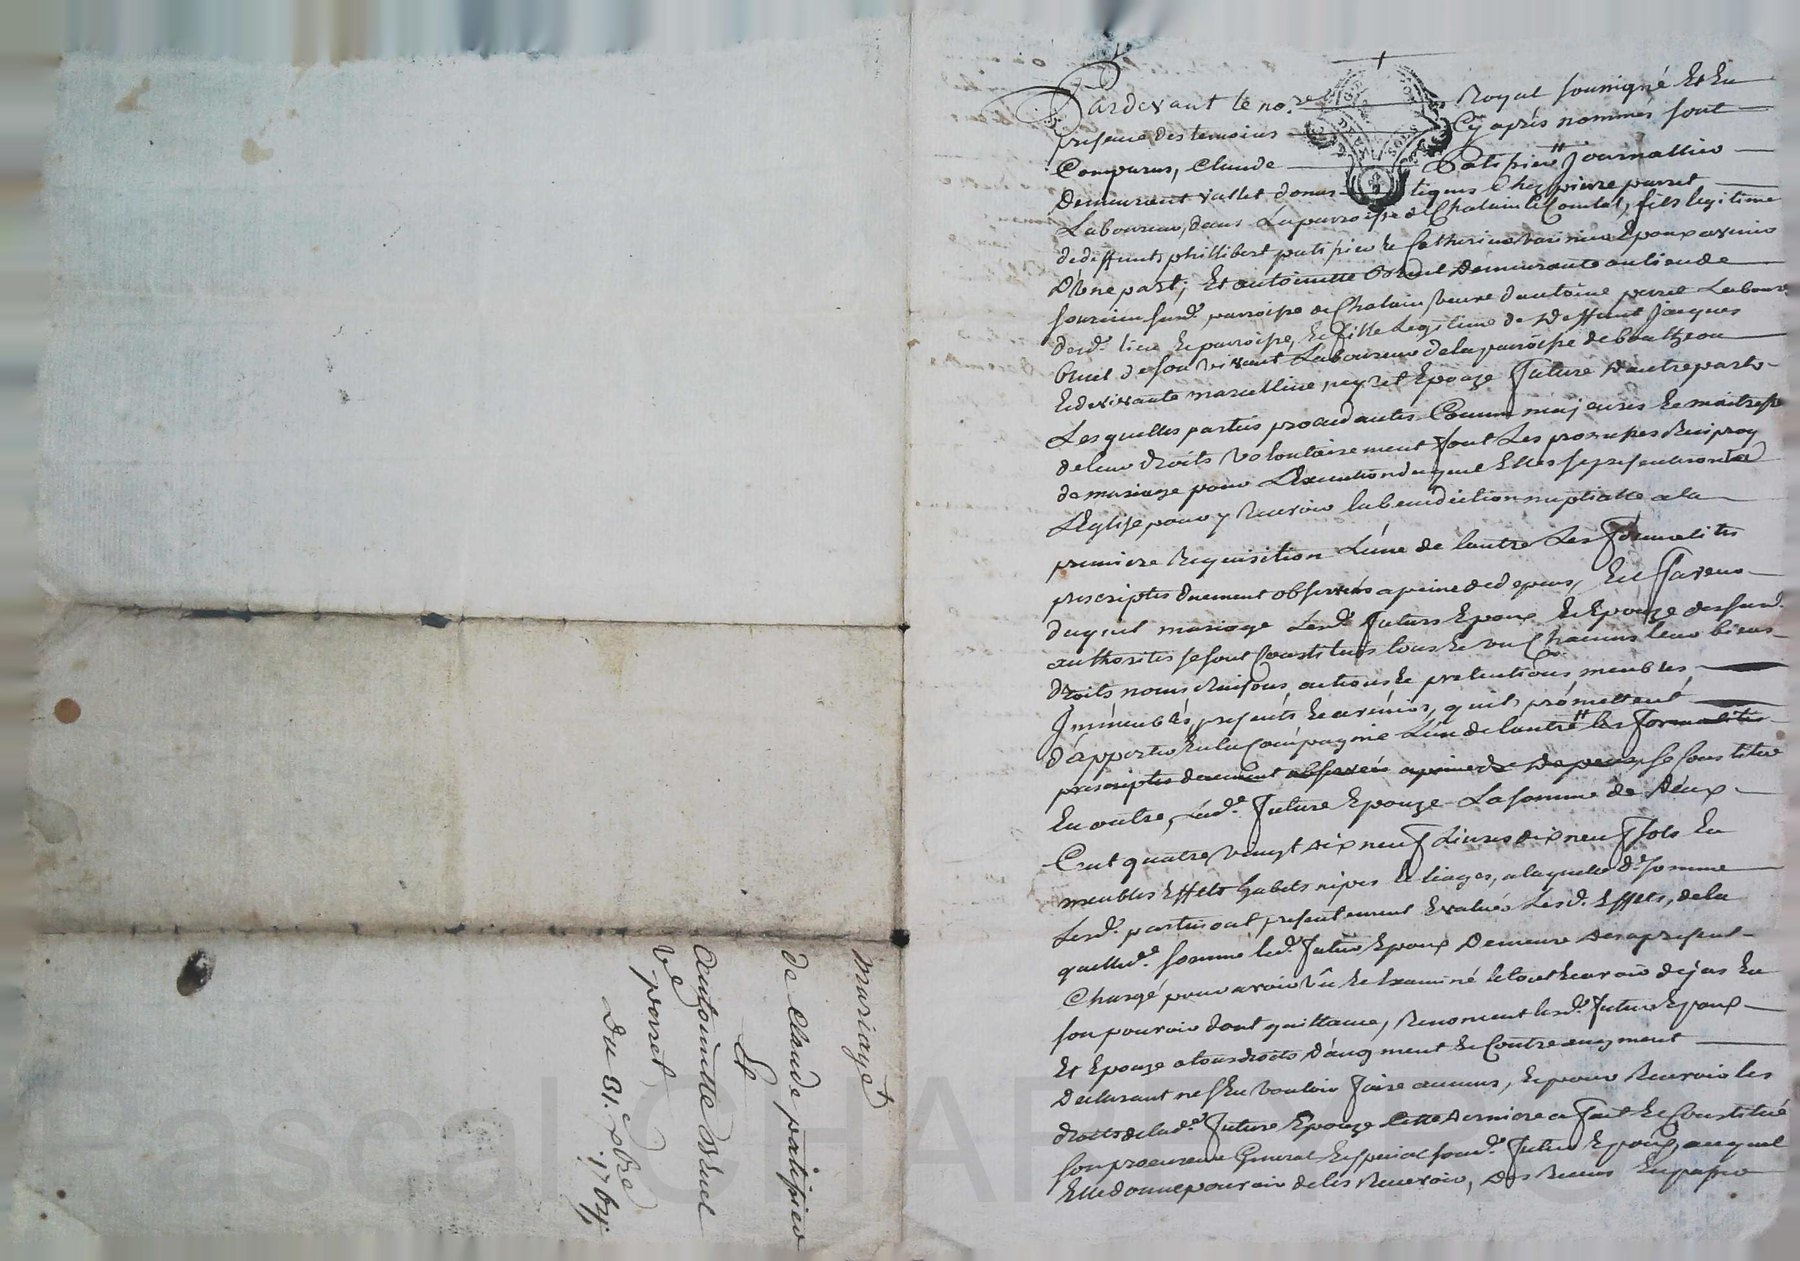 mariage
de Claude patissier
Et
Antoinette
Vve perret
Du 31e xbre
Pardevant le nore Royal soussigné Et En
presence des temoins Cy après nommés sont
Comparus, Claude Journallier
Demeurant vallet domestiques Chez pierre perret
Laboureur, dans La parroisse de Chalain le Comtal, fils legitime
de deffunt phillibert Et Catherine Epoux avenir
D'Une part; Et antoinette Demeurante au lieu de
parroisse de Chalain, veuve d'antoine perret Laboureur
dud. lieu Et parroisse, Et fille Legitime de Deffunt Jacques
de son vivant Laboureur de la parroisse de
Et de vivante marcelline Epouze future D'autre part
Lesquelles parties procedantes Comme majeures Et maitresses
de leur droits volontairement font Les promesses Reciproq
de mariage pour L'Execution duquel Elles se presenteront a
L'Eglise pour y Recevoir la benediction nuptialle a la
premiere Requisition L'une de lautre Les formalités
prescriptes duement observées a peine de depens, Et En faveur
duquel mariage Lesd. futurs Epoux Et Epouze
authorités se sont Constitués tous Et un Chacuns leur biens
droits noms Raisons, actions Et pretentions, meubles,
Immeubles, presents Et avenirs, quils promettent
d'apporter En la Compagnie L'un de lautre les formalités
prescriptes duement observées a peine de depens, se Constitue
En outre, Lad. future Epouze La somme de Deux
Cent quatre vingt dix neuf Livres dix neuf sols En
meubles Effets habits nipes Et linges, a laquelle d. somme
Lesd. parties ont presentement Evalués Lesd. Effets, de la
quelle d. somme led. futur Epoux Demeure Des apresent
Chargé pour avoir vû Et Examiné le tout Et avoir dejas En
son pouvoir dont quittance, Renoncent lesd. futur Epoux
Et Epouze a tous droits D'augment Et Contre augment
Declarant n'En vouloir faire aucuns, Et pour Recevoir les
droits de lad. future Epouze Cette Derniere a fait Et Constitué
son procureur General Et special led. futur Epoux, auquel
Elle donne pouvoir de les Recevoir, Des Recus En passer